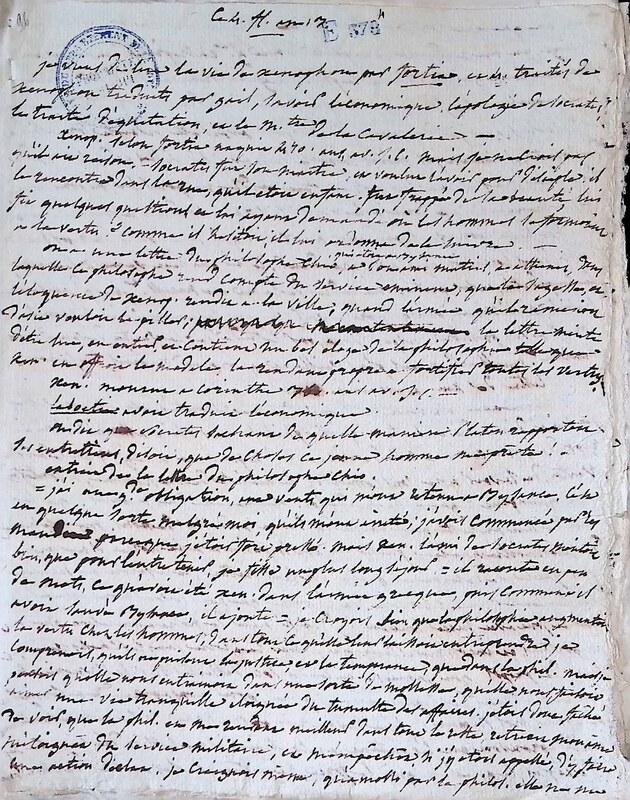 Ce 4. fl. an 12
E 378
je viens de lire la vie de xenophon par fortia, et les traités de
xenophon traduits par gail, savoir l'économique, l'apologie de socrate,
le traité d'équitation, et le m. tre de la Cavalerie. —
xenop. selon fortia naquit 450. ans av. j. C. mais je ne crois pas
qu'il ait raison. — socrate fut son maitre, et voulut l'avoir pour disciple. il
le rencontra dans la rue, qu'il étoit enfant. fut frappé de sa beauté, lui
fit quelques questions, et lui ayant demandé où les hommes se formoient
à la vertu? comme il hésitoit, il lui ordonna de le suivre —
on a une lettre du philosophe Chio à son ami matris, à athènes, dans
laquelle ce philosophe rend compte du service eminent, que la sagesse, et
l'éloquence de xenop. rendit à la ville, quand l'armée qu'il ramenoit
d'asie voulut la piller, la lettre mérite
d'être lue, en entier, et contient un bel éloge de la philosophie
xen. en offroit le modèle, la rendant propre à fortifier toutes les vertus
xen. mourut à corinthe ans av. j. C. —
avoit traduit l'économique
on dit que socrate sachant de quelle manière Platon rapportoit
ses entretiens, disoit, que de choses ce jeune homme me prête! —
extrait de la lettre du philosophe Chio
= j'ai une g.de obligation, aux vents, qui m'ont retenu à Byzance, c'est
en quelque sorte malgré moi qu'ils m'ont arrêté; j'avois commencé par les
maudire parceque j'étois fort pressé. mais xen. l'ami de socrate, méritoit
bien, que pour l'entretenir je fisse un plus long séjour = il raconte en peu
de mots, ce qu'avoit été xen. dans l'armée grecque, puis comment il
avoit sauvé Byzance, il ajoute = je croyois bien que la philosophie augmentoit
la vertu chez les hommes, dans tout ce qu'elle leur laissoit entreprendre je
comprenois, qu'ils ne puisent la justice et la temperance que dans la phil. mais je
pensois qu'elle nous entrainoit dans une sorte de mollesse, qu'elle nous faisoit
aimer une vie tranquille éloignée du tumulte des affaires. j'étois donc fâché
de voir, que la phil. en me rendant meilleur dans tout le reste
m'éloignoit du service militaire, et m'empêchoit si j'y étois appelé, d'y faire
une action d'éclat, je craignois même, qu'amolli par la philos. elle ne me